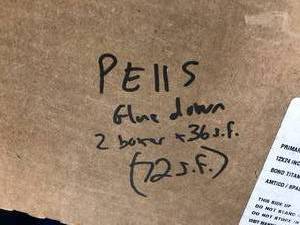 PEllS
Glue down
2 boxes x 36 s.f.
(72 s.f.)
PRIMAR
12X24 INC
BOND TITAN
AMTICO / SPA
THIS SIDE UP
DO NOT STAND
DO NOT STORE